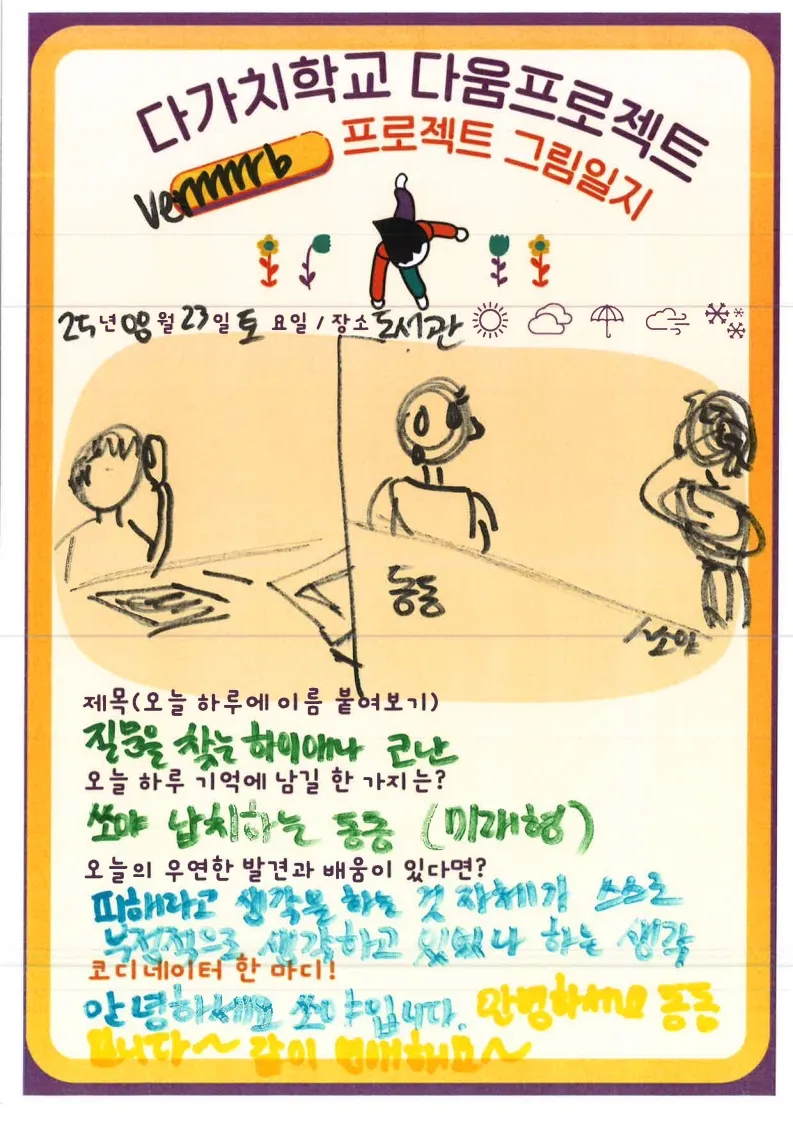 다가치학교 다움프로젝트
프로젝트 그림일지
25년 08월 23일 토 요일 / 장소 도서관
동동
쏘야
제목(오늘 하루에 이름 붙여보기)
질문을 찾는 하이에나 코난
오늘 하루 기억에 남길 한 가지는?
쏘야 납치하는 동동 (미래형)
오늘의 우연한 발견과 배움이 있다면?
피해라고 생각을 하는 것 자체가 스스로
부정적으로 생각하고 있었나 하는 생각
코디네이터 한 마디!
안녕하세요 쏘야입니다. 안녕하세요 동동
입니다~ 같이 연애해요~